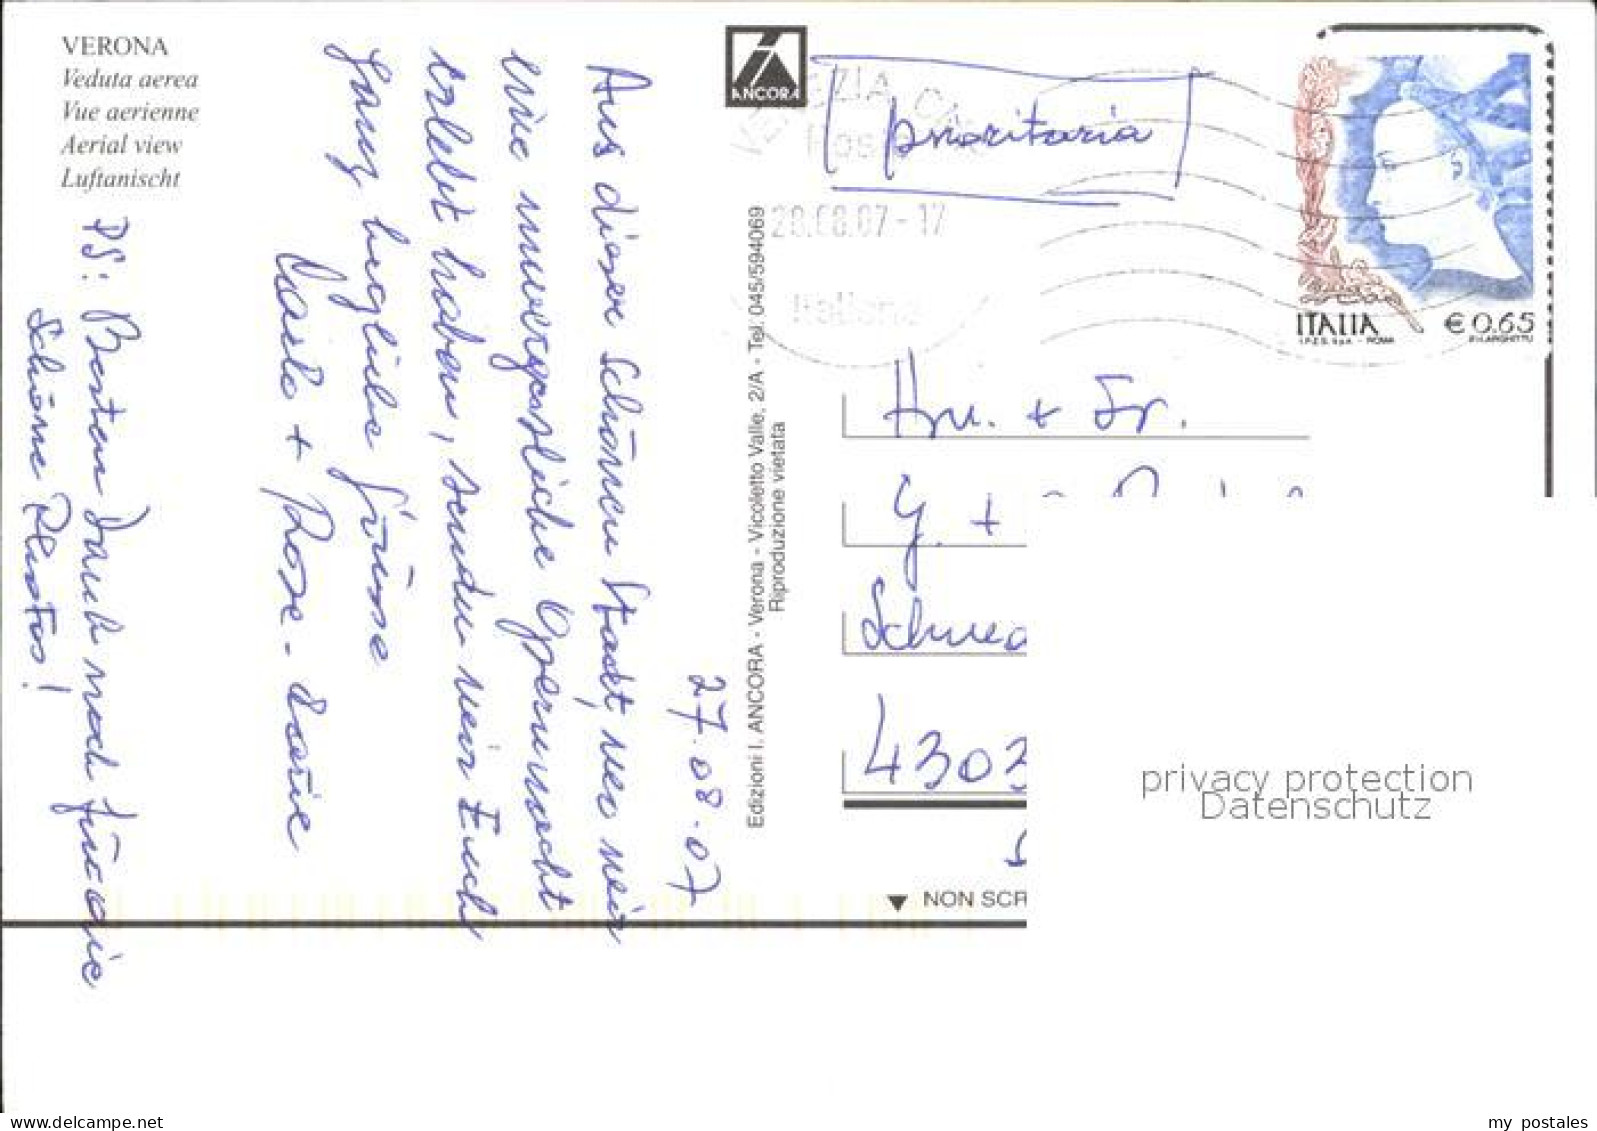 VERONA
Veduta aerea
Vue aerienne
Aerial view
Luftanischt
ANCORA
prioritaria
28.08.07-17
Italiane
ITALIA
€ 0.65
I.P.Z.S. S.p.A. - ROMA
27.08.07
Aus dieser schönen Stadt, wo wir
eine unvergessliche Opernnacht
erlebt haben, senden wir Euch
ganz herzliche Grüsse
+ Rose-Marie
PS: Besten Dank noch für die
schöne Photos!
Edizioni I. ANCORA - Verona - Vicoletto Valle, 2/A - Tel. 045/594069
Riproduzione vietata
Hrn. + Fr.
G. +
4303
NON SCR
privacy protection
Datenschutz
delcampe.net
my_postales